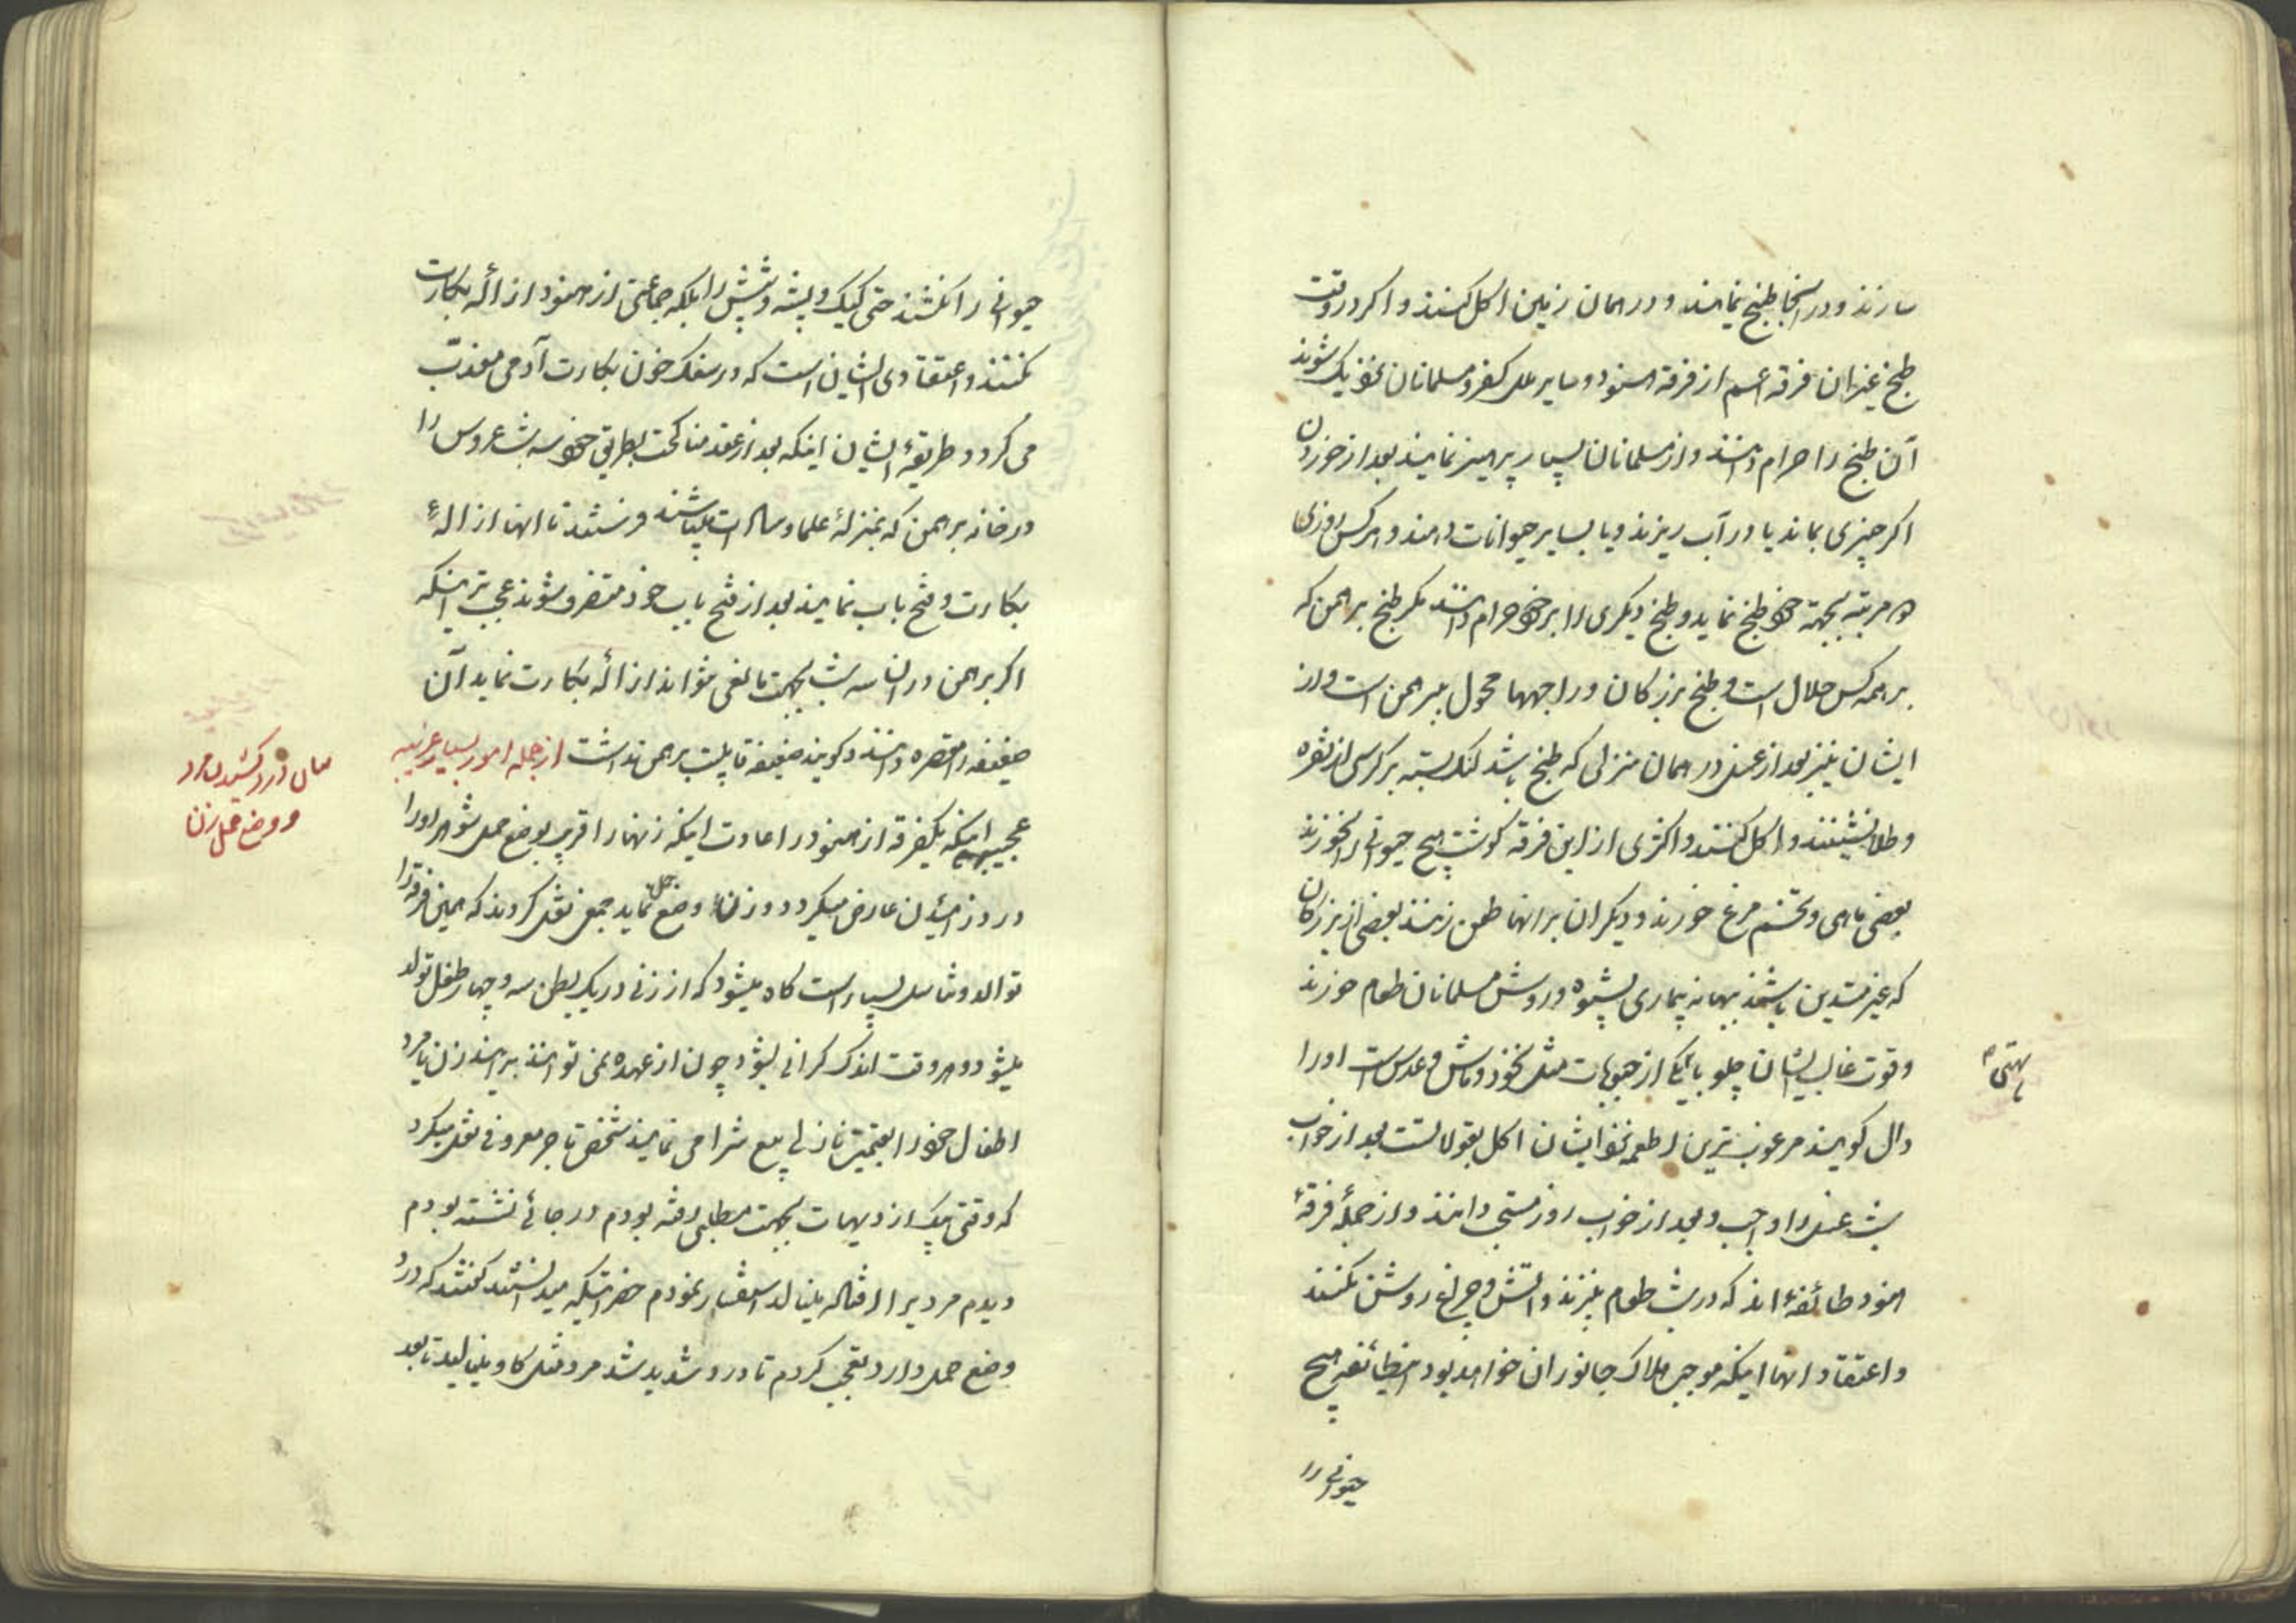 سازند و در آنجا طبخ نمایند و در همان زمین اکل کنند و اگر در وقت
طبخ غیر ان فرقه اعم از فرقه هنود و سایر ملل کفر و مسلمانان نزدیک شوند
آن طبخ را حرام دانند و از مسلمانان بسیار پرهیز نمایند بعد از خوردن
اکر چیزی بماند یا در آب ریزند و یا بسایر حیوانات دهند و هرکس روزی
دو مرتبه بجهة خود طبخ نماید و طبخ دیکری را بر خود حرام دانند مکر طبخ برهمن که
بر همه کس حلال است و طبخ بزرکان و راجهها محول ببرهمن است و از
ایشان نیز بعد از غسل در همان منزلی که طبخ باشد لنک بسته بر کرسی از نقره
و طلا نشینند و اکل کنند و اکثری از این فرقه کوشت هیچ حیوانی را نخورند
بعضی ماهی و تخم مرغ خورند و دیکران بر انها طعن زنند بعضی از بزرکان
که غیر متدین باشند ببهانه بیماری بشیوه و روش مسلمانان طعام خورند
و قوت غالب ایشان چلو با یکی از حبوبات مثل نخود و ماش و عدس است او را
دال کویند مرغوب ترین اطعمه نزد ایشان اکل بقولاتست بعد از خواب
شب غسل را واجب و بعد از خواب روز مستحب دانند و از جملهٔ فرقهٔ
هنود طائفهٔ اند که در شب طعام نپزند و آتش و چراغ روشن نکنند
و اعتقاد انها اینکه موجب هلاک جانوران خواهد بود اینطائفه هیچ
حیوانی را
حیوانی را نکشند حتی کیک و پشه و شپش را بلکه جماعتی از هنود ازالهٔ بکارت
نکنند و اعتقادی ایشان است که در سفک خون بکارت آدمی معذب
می کردد و طریقهٔ ایشان اینکه بعد از عقد مناکحت بطریق خود سه شب عروس را
در خانه برهمن که بمنزلهٔ علما و سادات میباشند فرستند تا انها ازالهٔ
بکارت و فتح باب نمایند بعد از فتح باب خود متصرف شوند عجب تر اینکه
اکر برهمن در ان سه شب بجهت مانعی نتواند ازالهٔ بکارت نماید آن
ضعیفه را مقصره دانند و کویند ضعیفه قابلیت برهمن نداشت از جمله امور بسیار غریبه
عجیبه اینکه یکفرقه از هنود را عادت اینکه زنها را قریب بوضع حمل شوهر او را
درد زائیدن عارض میکردد و زن وضع حمل نماید جمعی نقل کردند که همین فرقه را
توالد و تناسل بسیار است کاه میشود که از زنی در یک بطن سه و چهار طفل تولد
میشود و هروقت اندک کرانی بشود چون از عهده نمی توانند برایند زن یا مرد
اطفال خود را بقیمت نازلی بیع شرا می نمایند شخص تاجر معروفی نقل میکرد
که وقتی بیک از دیهات بجهت مطلبی رفته بودم در جائی نشسته بودم
دیدم مردیرا افتاده مینالد استفسار نمودم حضراتیکه میدانستند کفتند که درد
وضع حمل دارد تعجب کردم تا درد شدید شد مرد مثل کاو مینالید تا بعد
درد کشیدن مرد
و وضع حمل زن